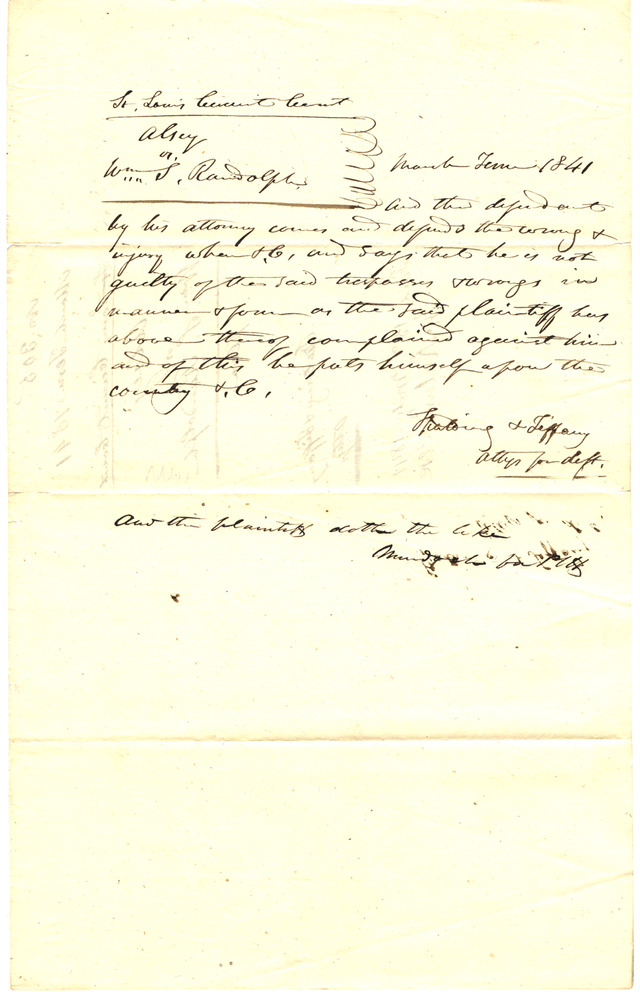 St. Louis Circuit Court
Alsey
vs.
Wm. S. Randolph
March Term 1841
And the defendant
by his attorney comes and defends the wrong &
injury when &C, and says that he is not
guilty of the said trespasses & wrongs in
manner & form as the said plaintiff has
above thereof complained against him
and of this he puts himself upon the
country &.C.
Spalding & Tiffany
Attys for deft.
And the plaintiff doth the like
Murdoch for Plff